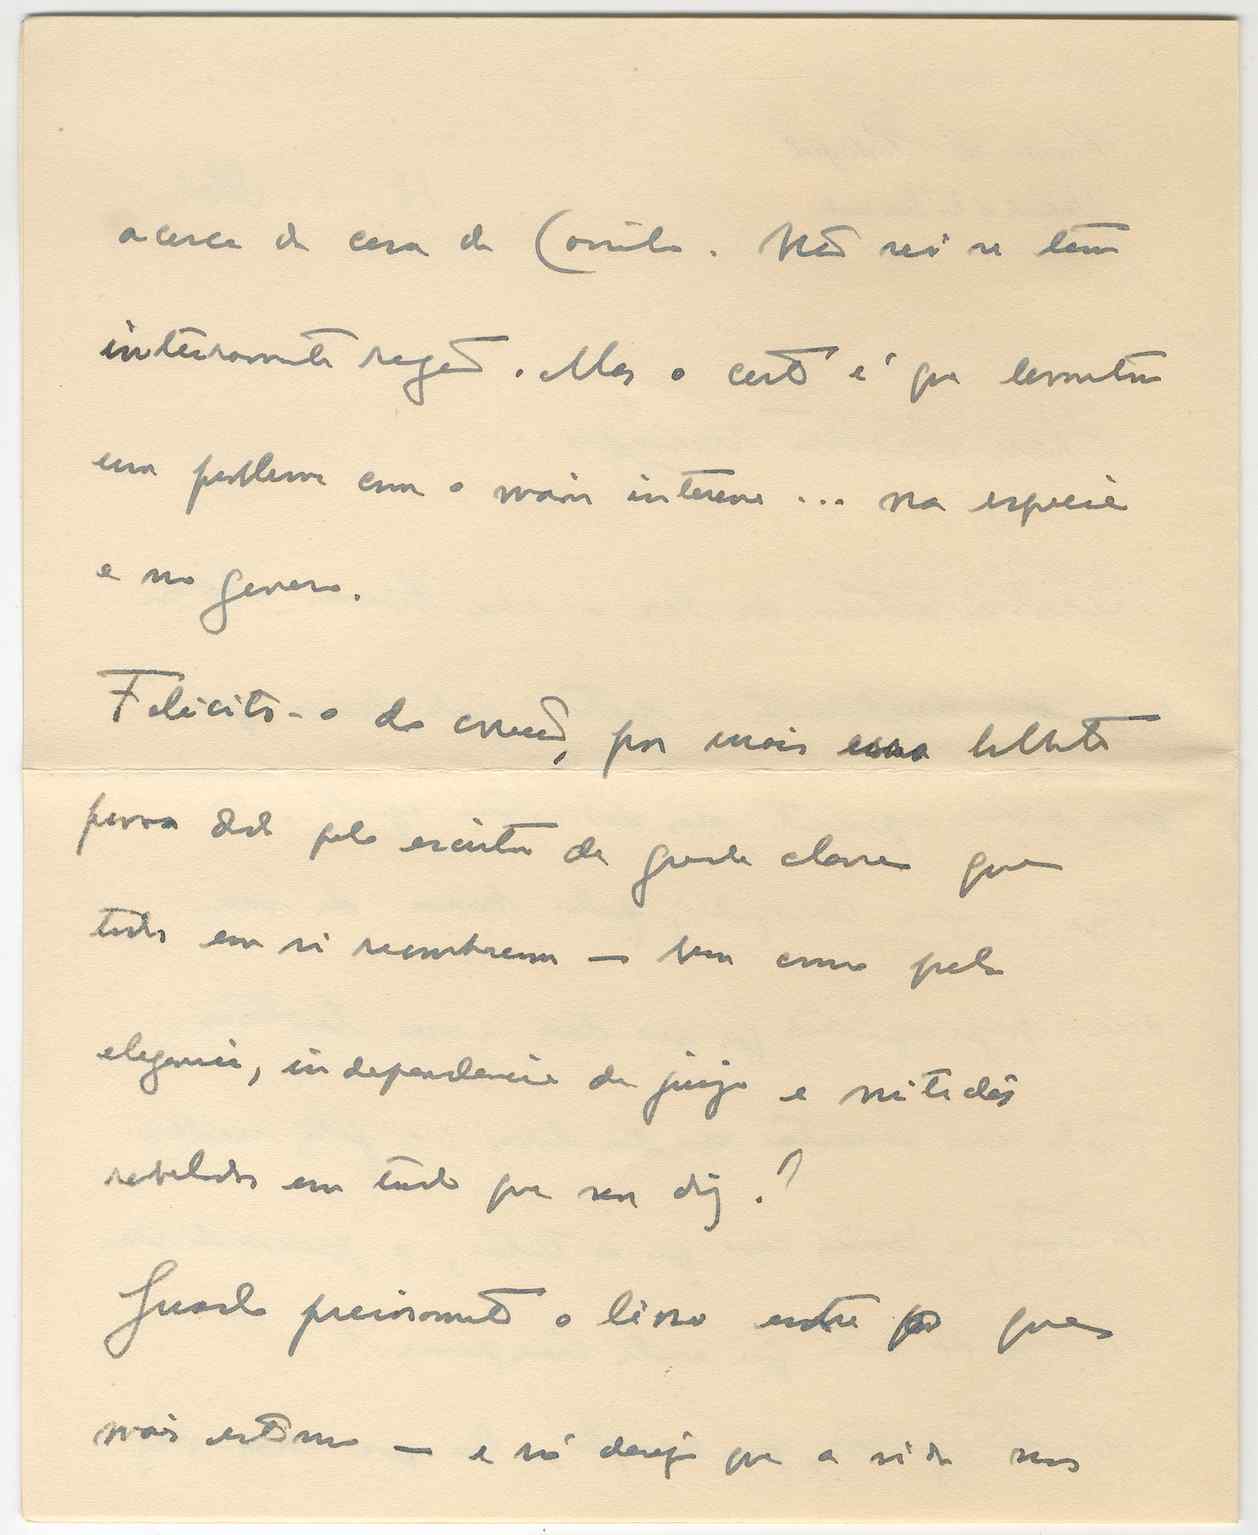 acerca da casa de Camilo. Não sei se tem
inteiramente razão. Mas o certo é que levanta
um problema com o maior interesse ... na especie
e no genero.
Felicito-o do coração, por mais essa brilhante
prova dada pelo escritor de grande classe que
todos em si reconhecem — bem como pela
elegancia, independencia de juizo e nitidês
reveladas em tudo que nos diz.
Guardo preciosamente o livro entre os que
mais estimo — e só desejo que a vida nos